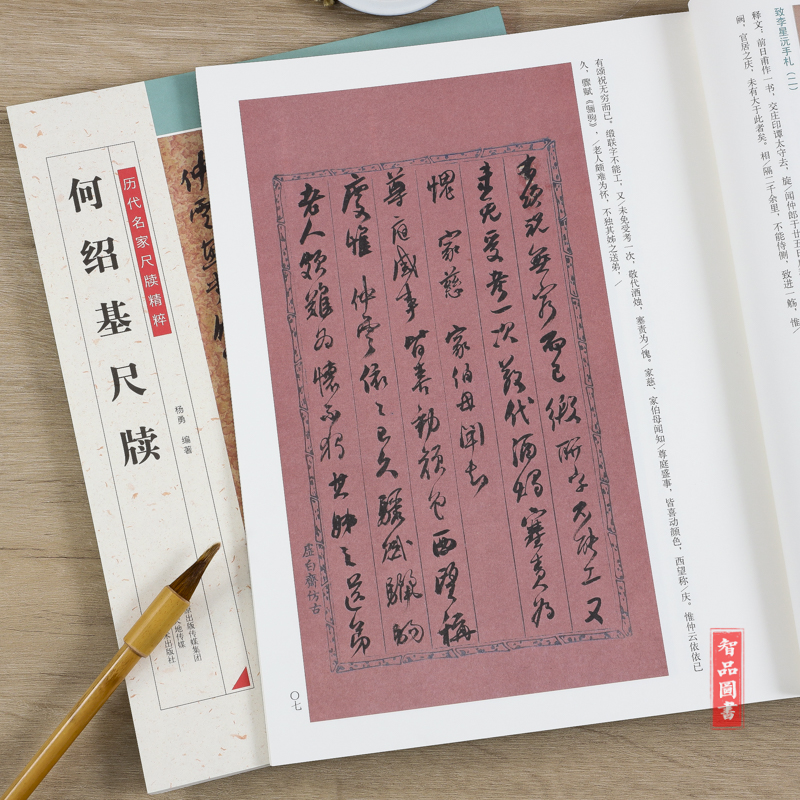 历代名家尺牍精粹
何绍基尺牍
杨勇 编著
出版传媒集团
地传媒
术出版社
致李星沅手札（二）
释文：前日甫作一书，交庄印谭太守去，旋／闻仲郎于廿五日
阙，官居之庆，未有大于此者矣。相／隔二千余里，不能侍侧，致进一觞，惟／
有颂祝无穷而已。缎联字不能工，又／未免受考一次，敬代酒烛，塞责为／愧。家慈、家伯母闻知／尊庭盛事，皆喜动颜色，西望称／庆。惟仲云依依已
久，骤赋《骊驹》，／老人颇难为怀，不独其姊之送弟，／
有颂祝无穷而已缎联字不能工又
未免受考一次敬代酒烛塞责为
愧 家慈 家伯母闻知
尊庭盛事皆喜動颜色西望稱
慶惟仲雲依依已久驟賦驪駒
老人頗難为懷不獨其姊之送弟
虚白齋仿古
〇七
智品圖書